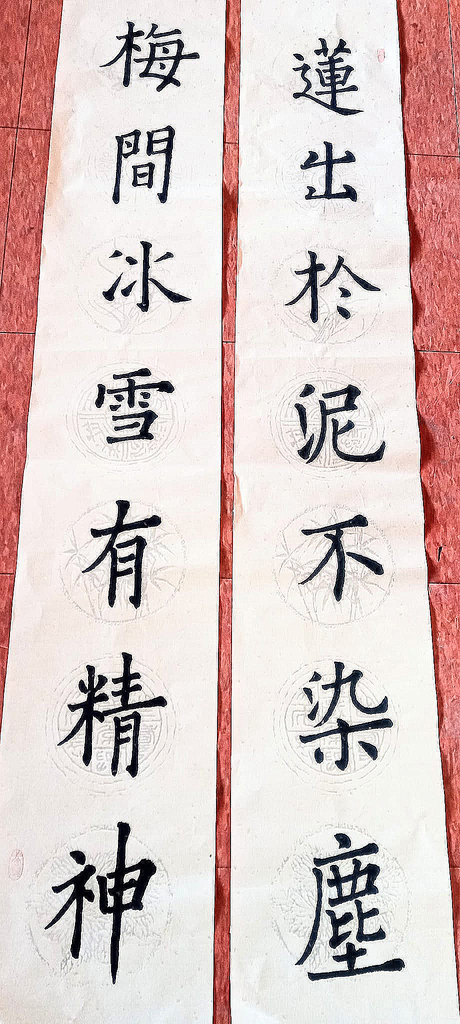 蓮出於泥不染塵
梅間冰雪有精神